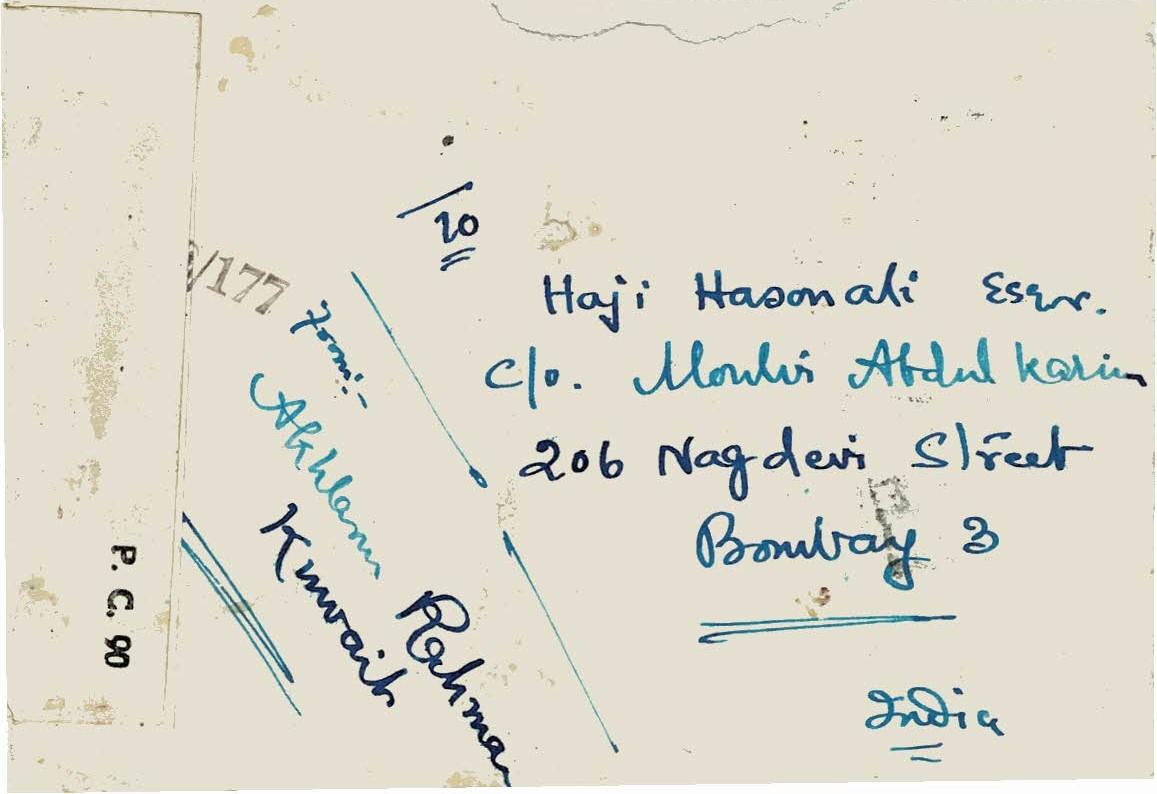 /10
Haji Hasonali Esqr.
c/o. Moulvi Abdul Karim
206 Nagdevi Street
Bombay 3
India
From:-
Akhlaqur Rahman
Kuwait
/177
P. C. 90